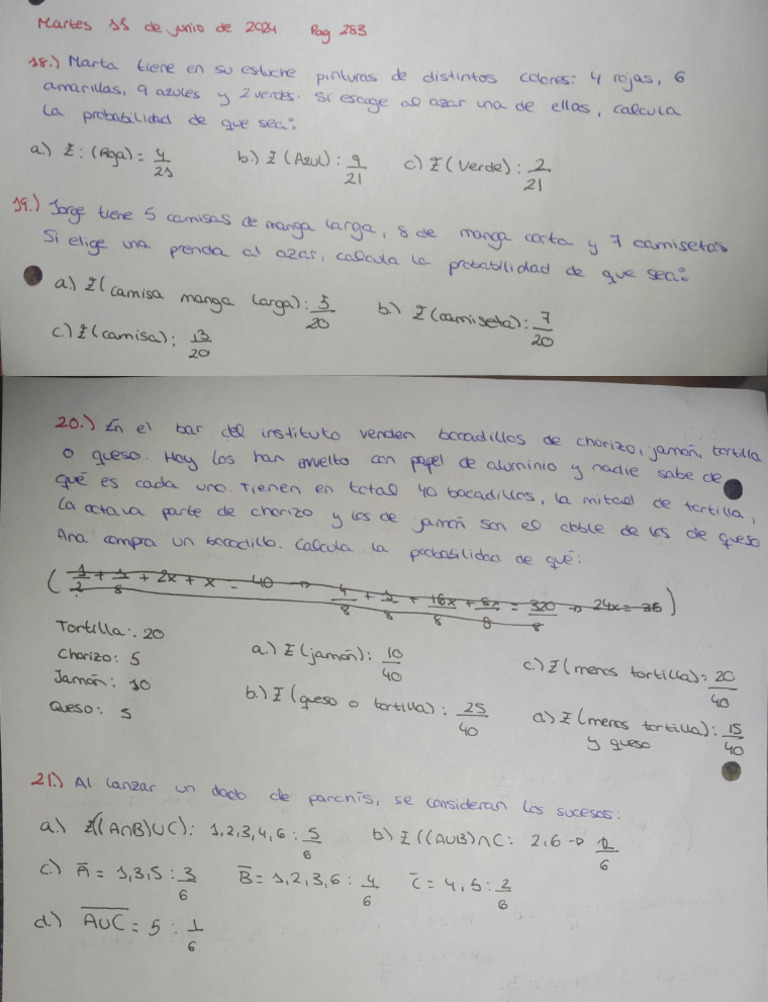 Martes 11 de junio de 2024 Pag 283
18.) Marta tiene en su estuche pinturas de distintos colores: 4 rojas, 6
amarillas, 9 azules y 2 verdes. Si escoge al azar una de ellas, calcula
la probabilidad de que sea:
a.) P: (Roja) = 4/21 b.) P (Azul): 9/21 c.) P (Verde): 2/21
19.) Jorge tiene 5 camisas de manga larga, 8 de manga corta y 7 camisetas
Si elige una prenda al azar, calcula la probabilidad de que sea:
a.) P (camisa manga larga): 5/20 b.) P (camiseta): 7/20
c.) P (camisa): 13/20
20.) En el bar del instituto venden bocadillos de chorizo, jamón, tortilla
o queso. Hoy los han envuelto con papel de aluminio y nadie sabe de
qué es cada uno. Tienen en total 40 bocadillos, la mitad de tortilla,
la octava parte de chorizo y los de jamón son el doble de los de queso
Ana compra un bocadillo. Calcula la probabilidad de qué:
(1/2 + 1/8 + 2x + x = 40 → 4/8 + 1/8 + 16x/8 + 8x/8 = 320/8 → 24x = 36)
Tortilla: 20
Chorizo: 5
Jamón: 10
Queso: 5
a.) P (jamón): 10/40 c.) P (menos tortilla): 20/40
b.) P (queso o tortilla): 25/40 d) P (menos tortilla): 15/40
y queso
21.) Al lanzar un dado de parchís, se consideran los sucesos:
a.) P((A∩B)∪C): 1,2,3,4,6 : 5/6 b.) P ((A∪B)∩C: 2,6 → 2/6
c.) A̅ = 1,3,5 : 3/6 B̅ = 1,2,3,6 : 4/6 C̅ = 4,5 : 2/6
d.) A̅∪̅C̅ = 5 : 1/6